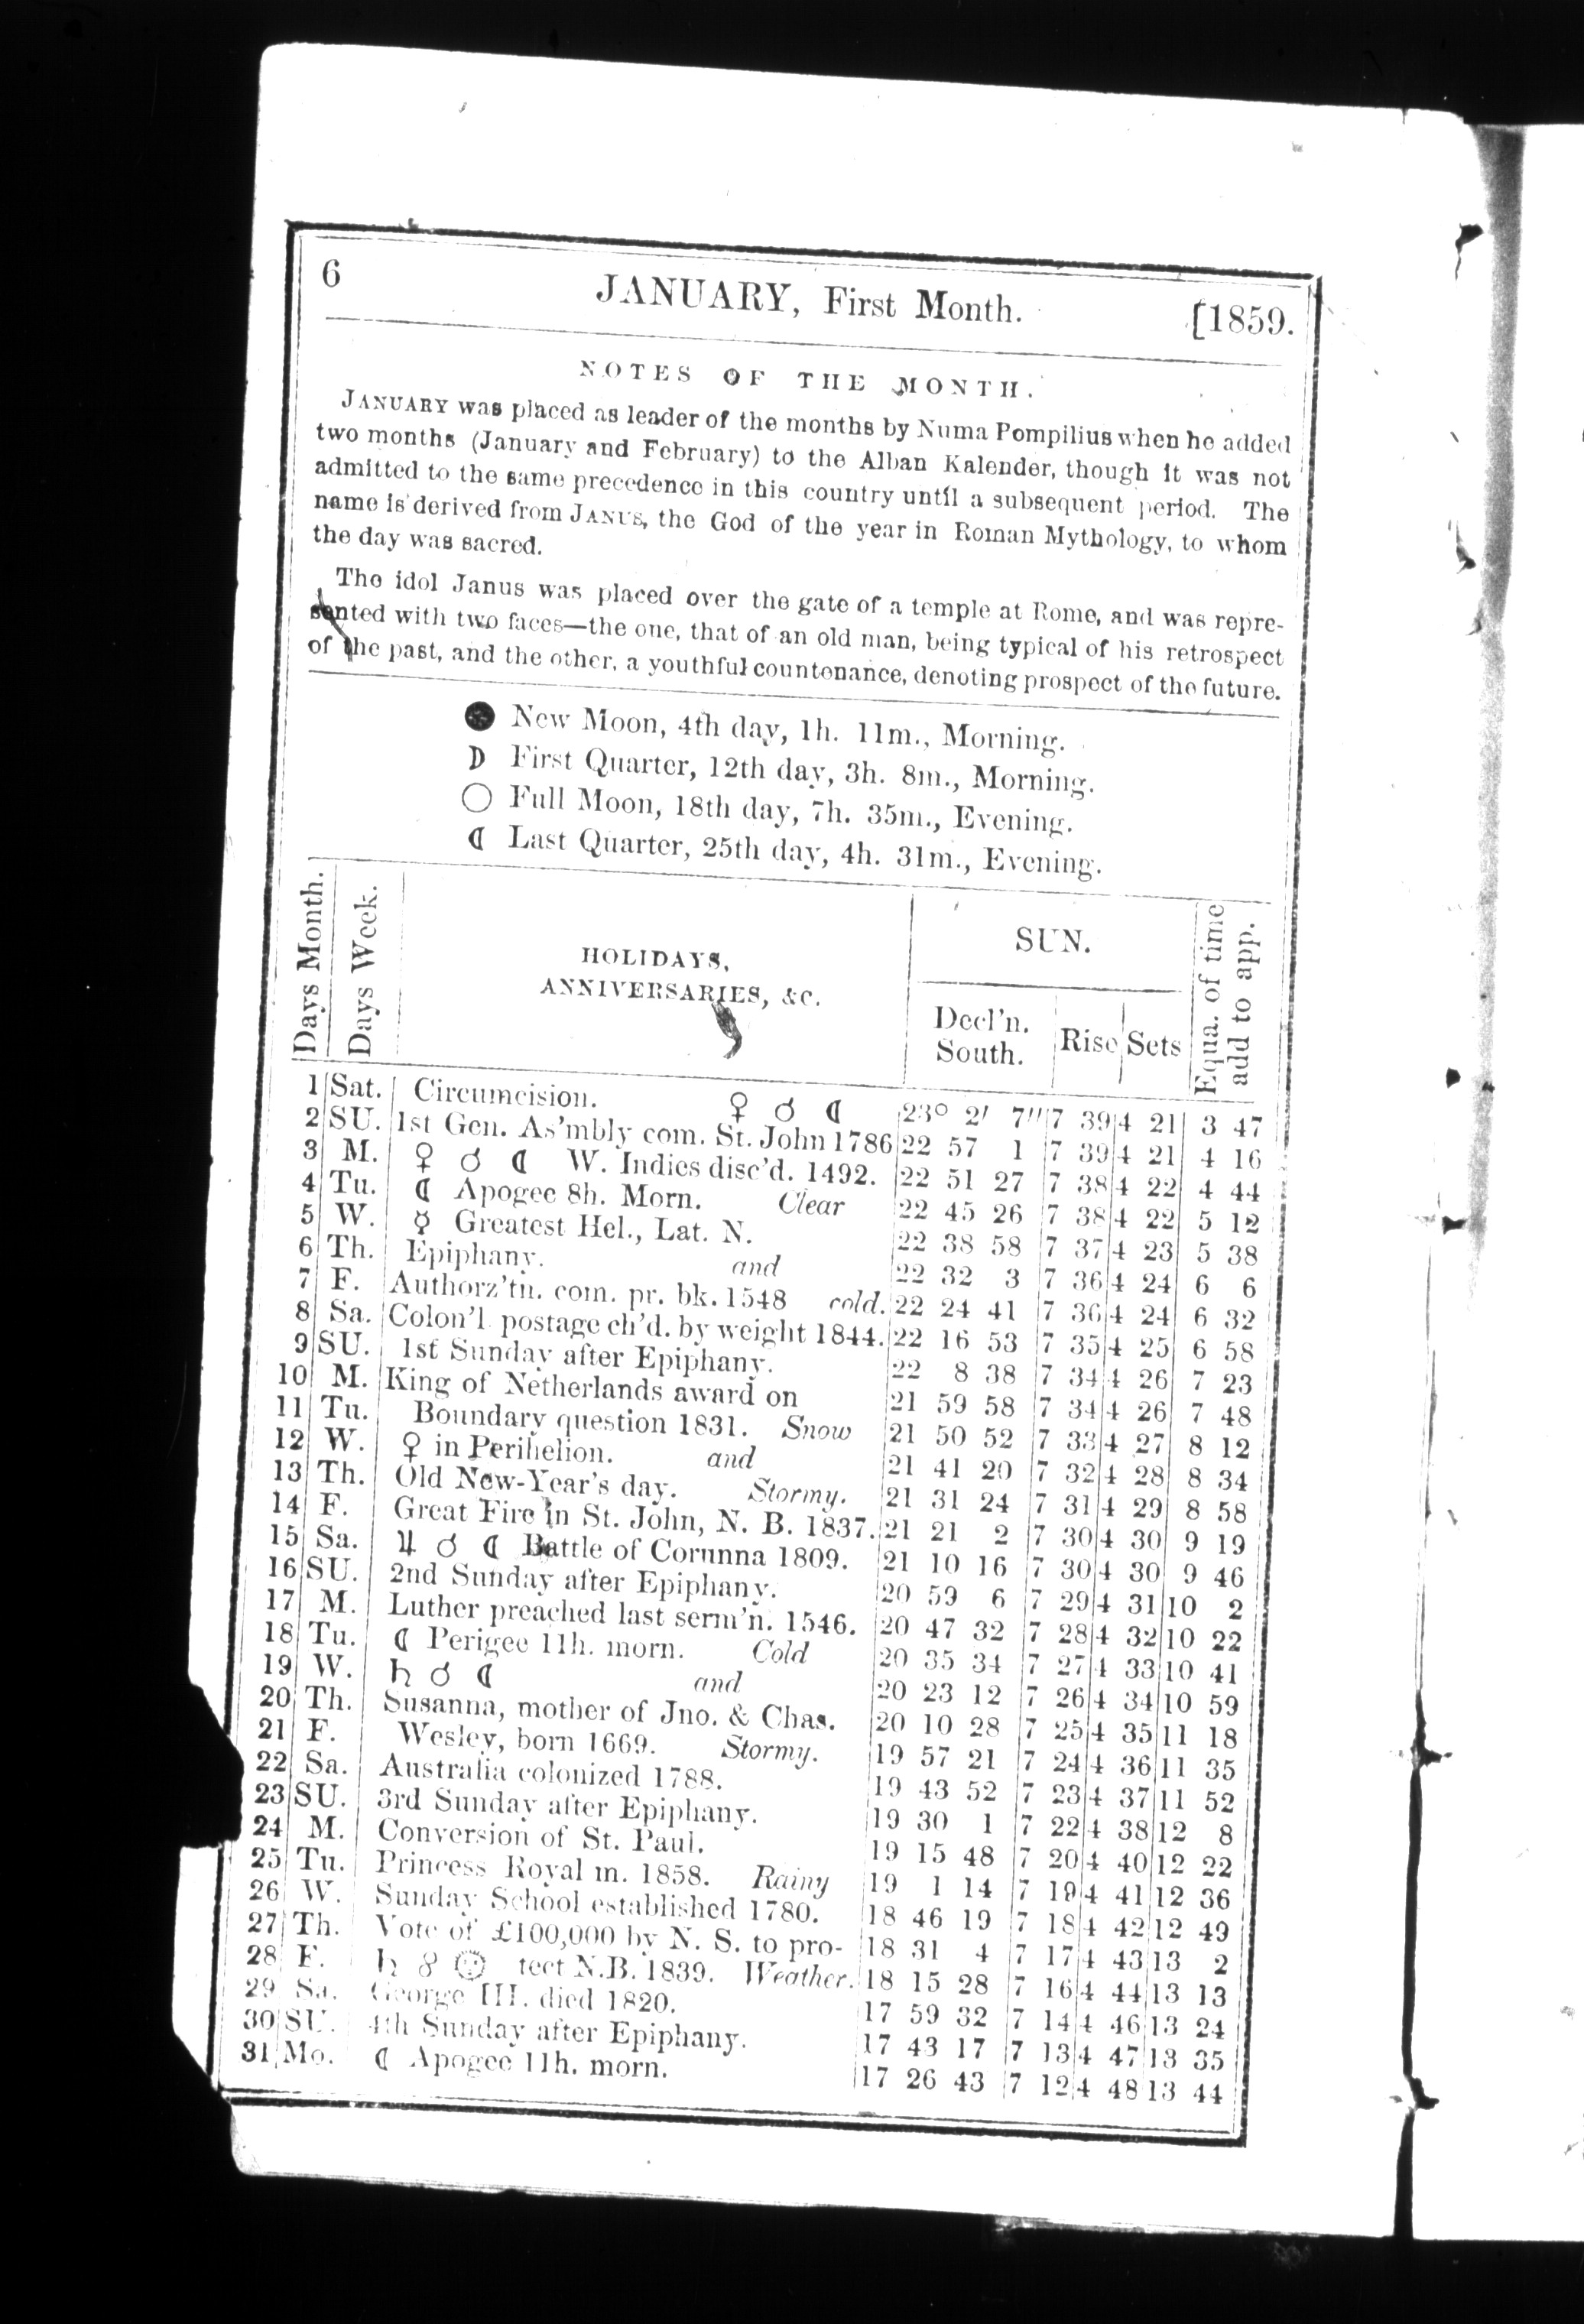 6 JANUARY, First Month. [1859.
NOTES OF THE MONTH.
JANUARY was placed as leader of the months by Numa Pompilius when he added
two months (January and February) to the Alban Kalender, though it was not
admitted to the same precedence in this country until a subsequent period. The
name is derived from JANUS, the God of the year in Roman Mythology, to whom
the day was sacred.
The idol Janus was placed over the gate of a temple at Rome, and was repre-
sented with two faces—the one, that of an old man, being typical of his retrospect
of the past, and the other, a youthful countenance, denoting prospect of the future.
● New Moon, 4th day, 1h. 11m., Morning.
☽ First Quarter, 12th day, 3h. 8m., Morning.
○ Full Moon, 18th day, 7h. 35m., Evening.
☾ Last Quarter, 25th day, 4h. 31m., Evening.
Days Month. Days Week. HOLIDAYS, ANNIVERSARIES, &C. SUN. Equa. of time add to app.
Decl'n. South. Rise Sets
1 Sat. Circumcision. ♀ ☌ ☾ 23° 2′ 7″ 7 39 4 21 3 47
2 SU. 1st Gen. As'mbly com. St. John 1786 22 57 1 7 39 4 21 4 16
3 M. ♀ ☌ ☾ W. Indies disc'd. 1492. 22 51 27 7 38 4 22 4 44
4 Tu. ☾ Apogee 8h. Morn. Clear 22 45 26 7 38 4 22 5 12
5 W. ☿ Greatest Hel., Lat. N. 22 38 58 7 37 4 23 5 38
6 Th. Epiphany. and 22 32 3 7 36 4 24 6 6
7 F. Authorz'tn. com. pr. bk. 1548 cold. 22 24 41 7 36 4 24 6 32
8 Sa. Colon'l postage ch'd. by weight 1844. 22 16 53 7 35 4 25 6 58
9 SU. 1st Sunday after Epiphany. 22 8 38 7 34 4 26 7 23
10 M. King of Netherlands award on 21 59 58 7 34 4 26 7 48
11 Tu. Boundary question 1831. Snow 21 50 52 7 33 4 27 8 12
12 W. ♀ in Perihelion. and 21 41 20 7 32 4 28 8 34
13 Th. Old New-Year's day. Stormy. 21 31 24 7 31 4 29 8 58
14 F. Great Fire in St. John, N. B. 1837. 21 21 2 7 30 4 30 9 19
15 Sa. ♃ ☌ ☾ Battle of Corunna 1809. 21 10 16 7 30 4 30 9 46
16 SU. 2nd Sunday after Epiphany. 20 59 6 7 29 4 31 10 2
17 M. Luther preached last serm'n. 1546. 20 47 32 7 28 4 32 10 22
18 Tu. ☾ Perigee 11h. morn. Cold 20 35 34 7 27 4 33 10 41
19 W. ♄ ☌ ☾ and 20 23 12 7 26 4 34 10 59
20 Th. Susanna, mother of Jno. & Chas. 20 10 28 7 25 4 35 11 18
21 F. Wesley, born 1669. Stormy. 19 57 21 7 24 4 36 11 35
22 Sa. Australia colonized 1788. 19 43 52 7 23 4 37 11 52
23 SU. 3rd Sunday after Epiphany. 19 30 1 7 22 4 38 12 8
24 M. Conversion of St. Paul. 19 15 48 7 20 4 40 12 22
25 Tu. Princess Royal m. 1858. Rainy 19 1 14 7 19 4 41 12 36
26 W. Sunday School established 1780. 18 46 19 7 18 4 42 12 49
27 Th. Vote of £100,000 by N. S. to pro- 18 31 4 7 17 4 43 13 2
28 F. ♄ ☍ ☉ tect N.B. 1839. Weather. 18 15 28 7 16 4 44 13 13
29 Sa. George III. died 1820. 17 59 32 7 14 4 46 13 24
30 SU. 4th Sunday after Epiphany. 17 43 17 7 13 4 47 13 35
31 Mo. ☾ Apogee 11h. morn. 17 26 43 7 12 4 48 13 44